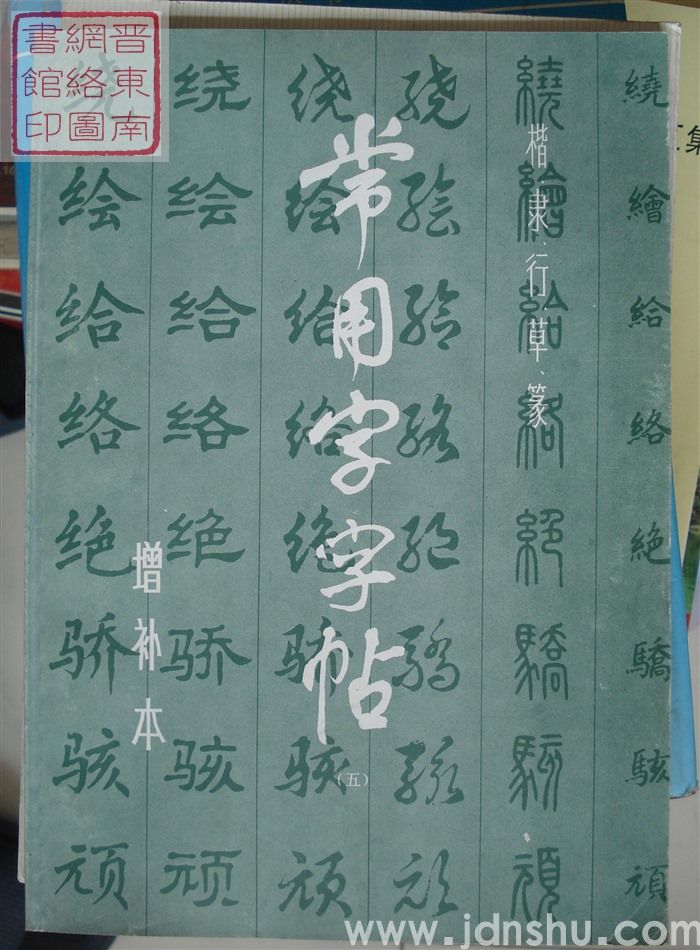 晋東南
網絡圖
書館印
常用字字帖
楷、隶、行、草、篆
增补本
（五）
绕 绕 绕 绕 繞 繞
绘 绘 绘 绘 繪 繪
给 给 给 给 給 給
络 络 络 络 絡 絡
绝 绝 绝 绝 絕 絕
骄 骄 骄 骄 驕 驕
骇 骇 骇 骇 駭 駭
顽 顽 顽 顽 頑 頑
集
www.jdnshu.com